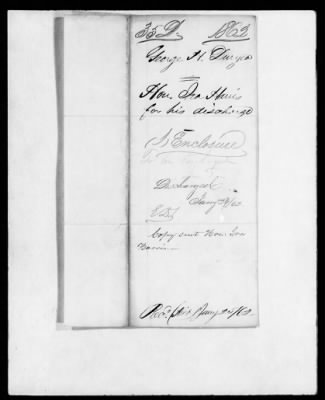 35 D. 1862
George H. Duryea
Hon. Ira Harris
for his discharge
1 Enclosure
Discharged
Jany
Copy sent Hon. Ira
Harris
Recd. Jany 24/62